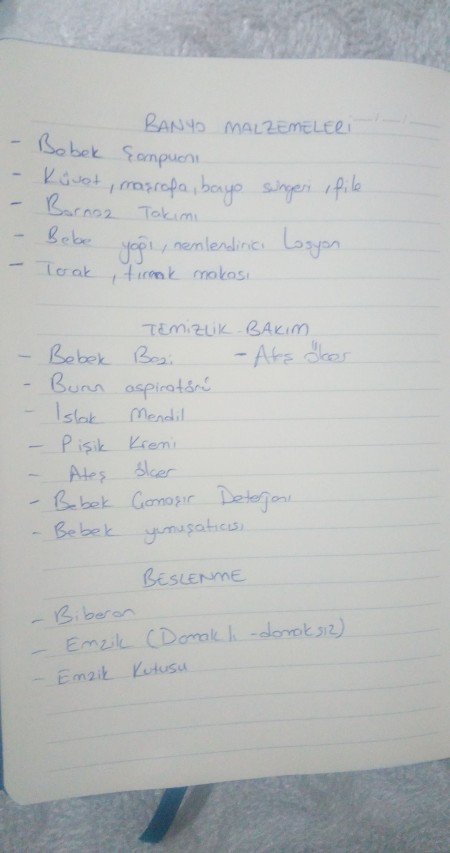 BANYO MALZEMELERİ
- Bebek Şampuanı
- Küvet, maşrapa, banyo süngeri, file
- Bornoz Takımı
- Bebe yağı, nemlendirici Losyon
- Tarak, tırnak makası
TEMİZLİK-BAKIM
- Bebek Bezi - Ateş ölçer
- Burun aspiratörü
- Islak Mendil
- Pişik Kremi
- Ateş ölçer
- Bebek Çamaşır Deterjanı
- Bebek yumuşatıcısı
BESLENME
- Biberon
- Emzik (Damaklı - damaksız)
- Emzik Kutusu